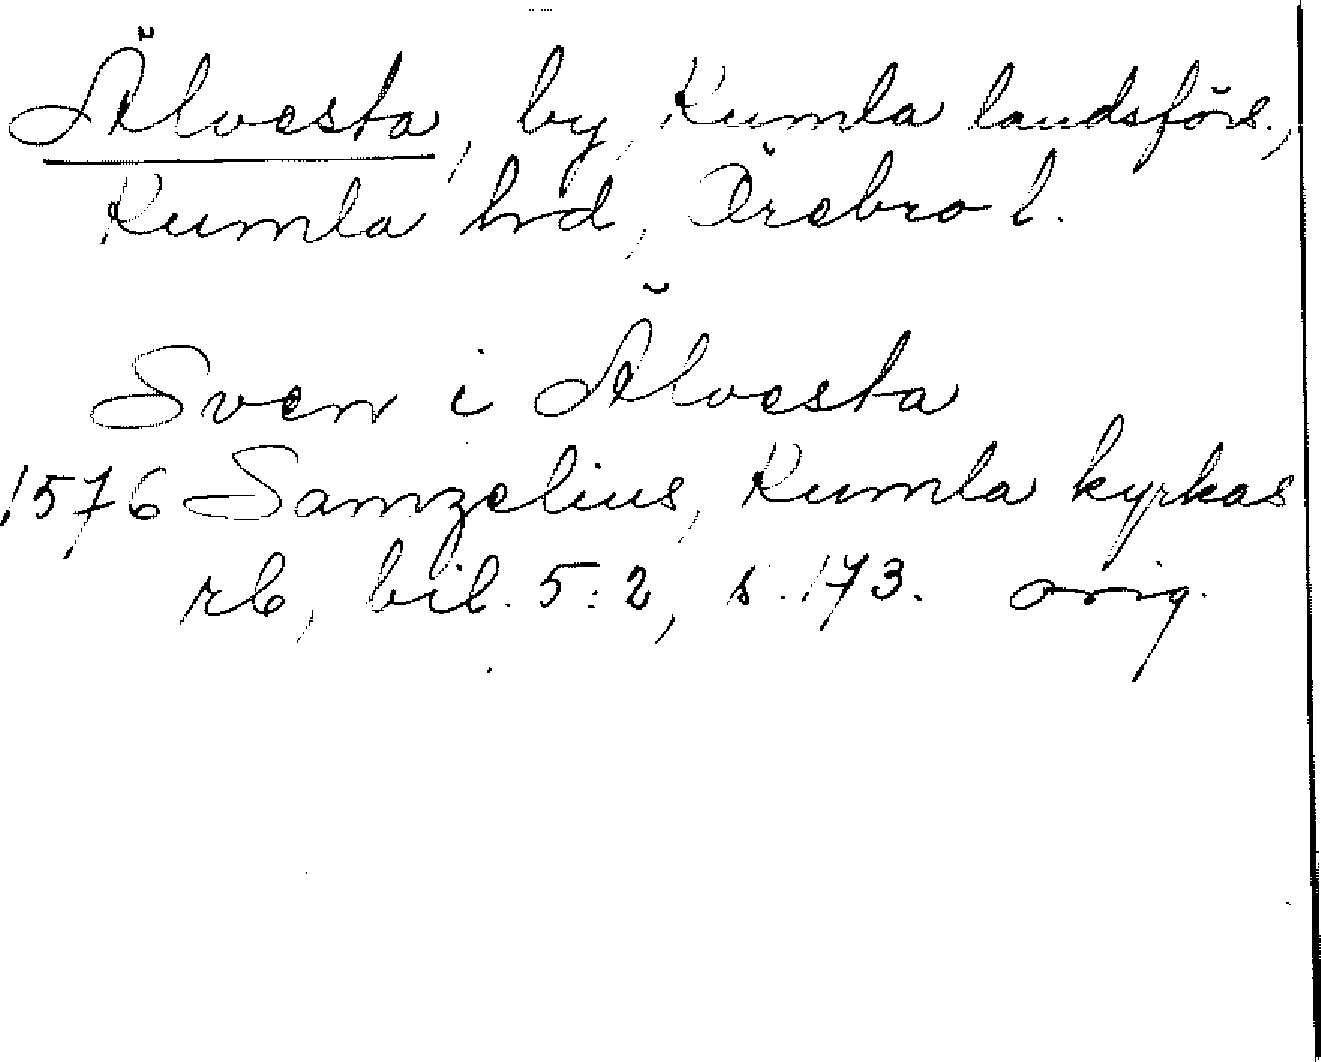 Älvesta, by, Kumla landsförs.,
Kumla hrd, Örebro l.
Sven i Älvesta
1576 Samzelius, Kumla kyrkas
rb, bil. 5:2, s. 173. orig.